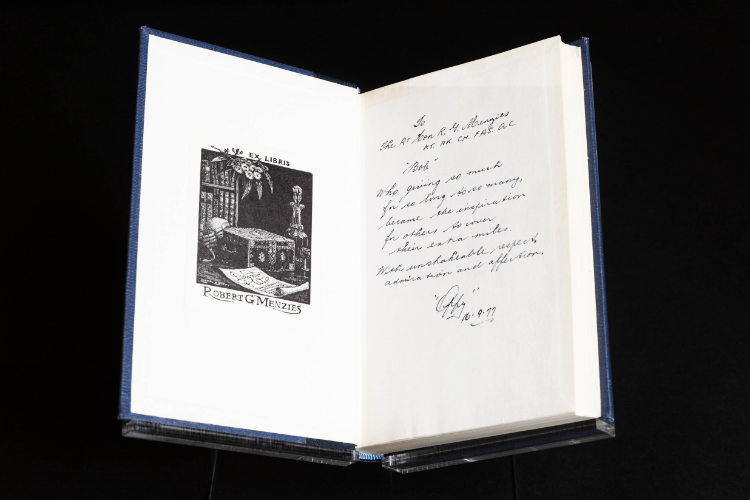 EX LIBRIS
ROBERT G MENZIES
To
The Rt Hon R. G. Menzies
KT. AK. CH. FAS. QC
"Bob"
Who giving so much
for so long to so many,
became the inspiration
for others to cover
their extra miles.
With unshakeable respect,
admiration and affection.
"Oppy"
16-9-77